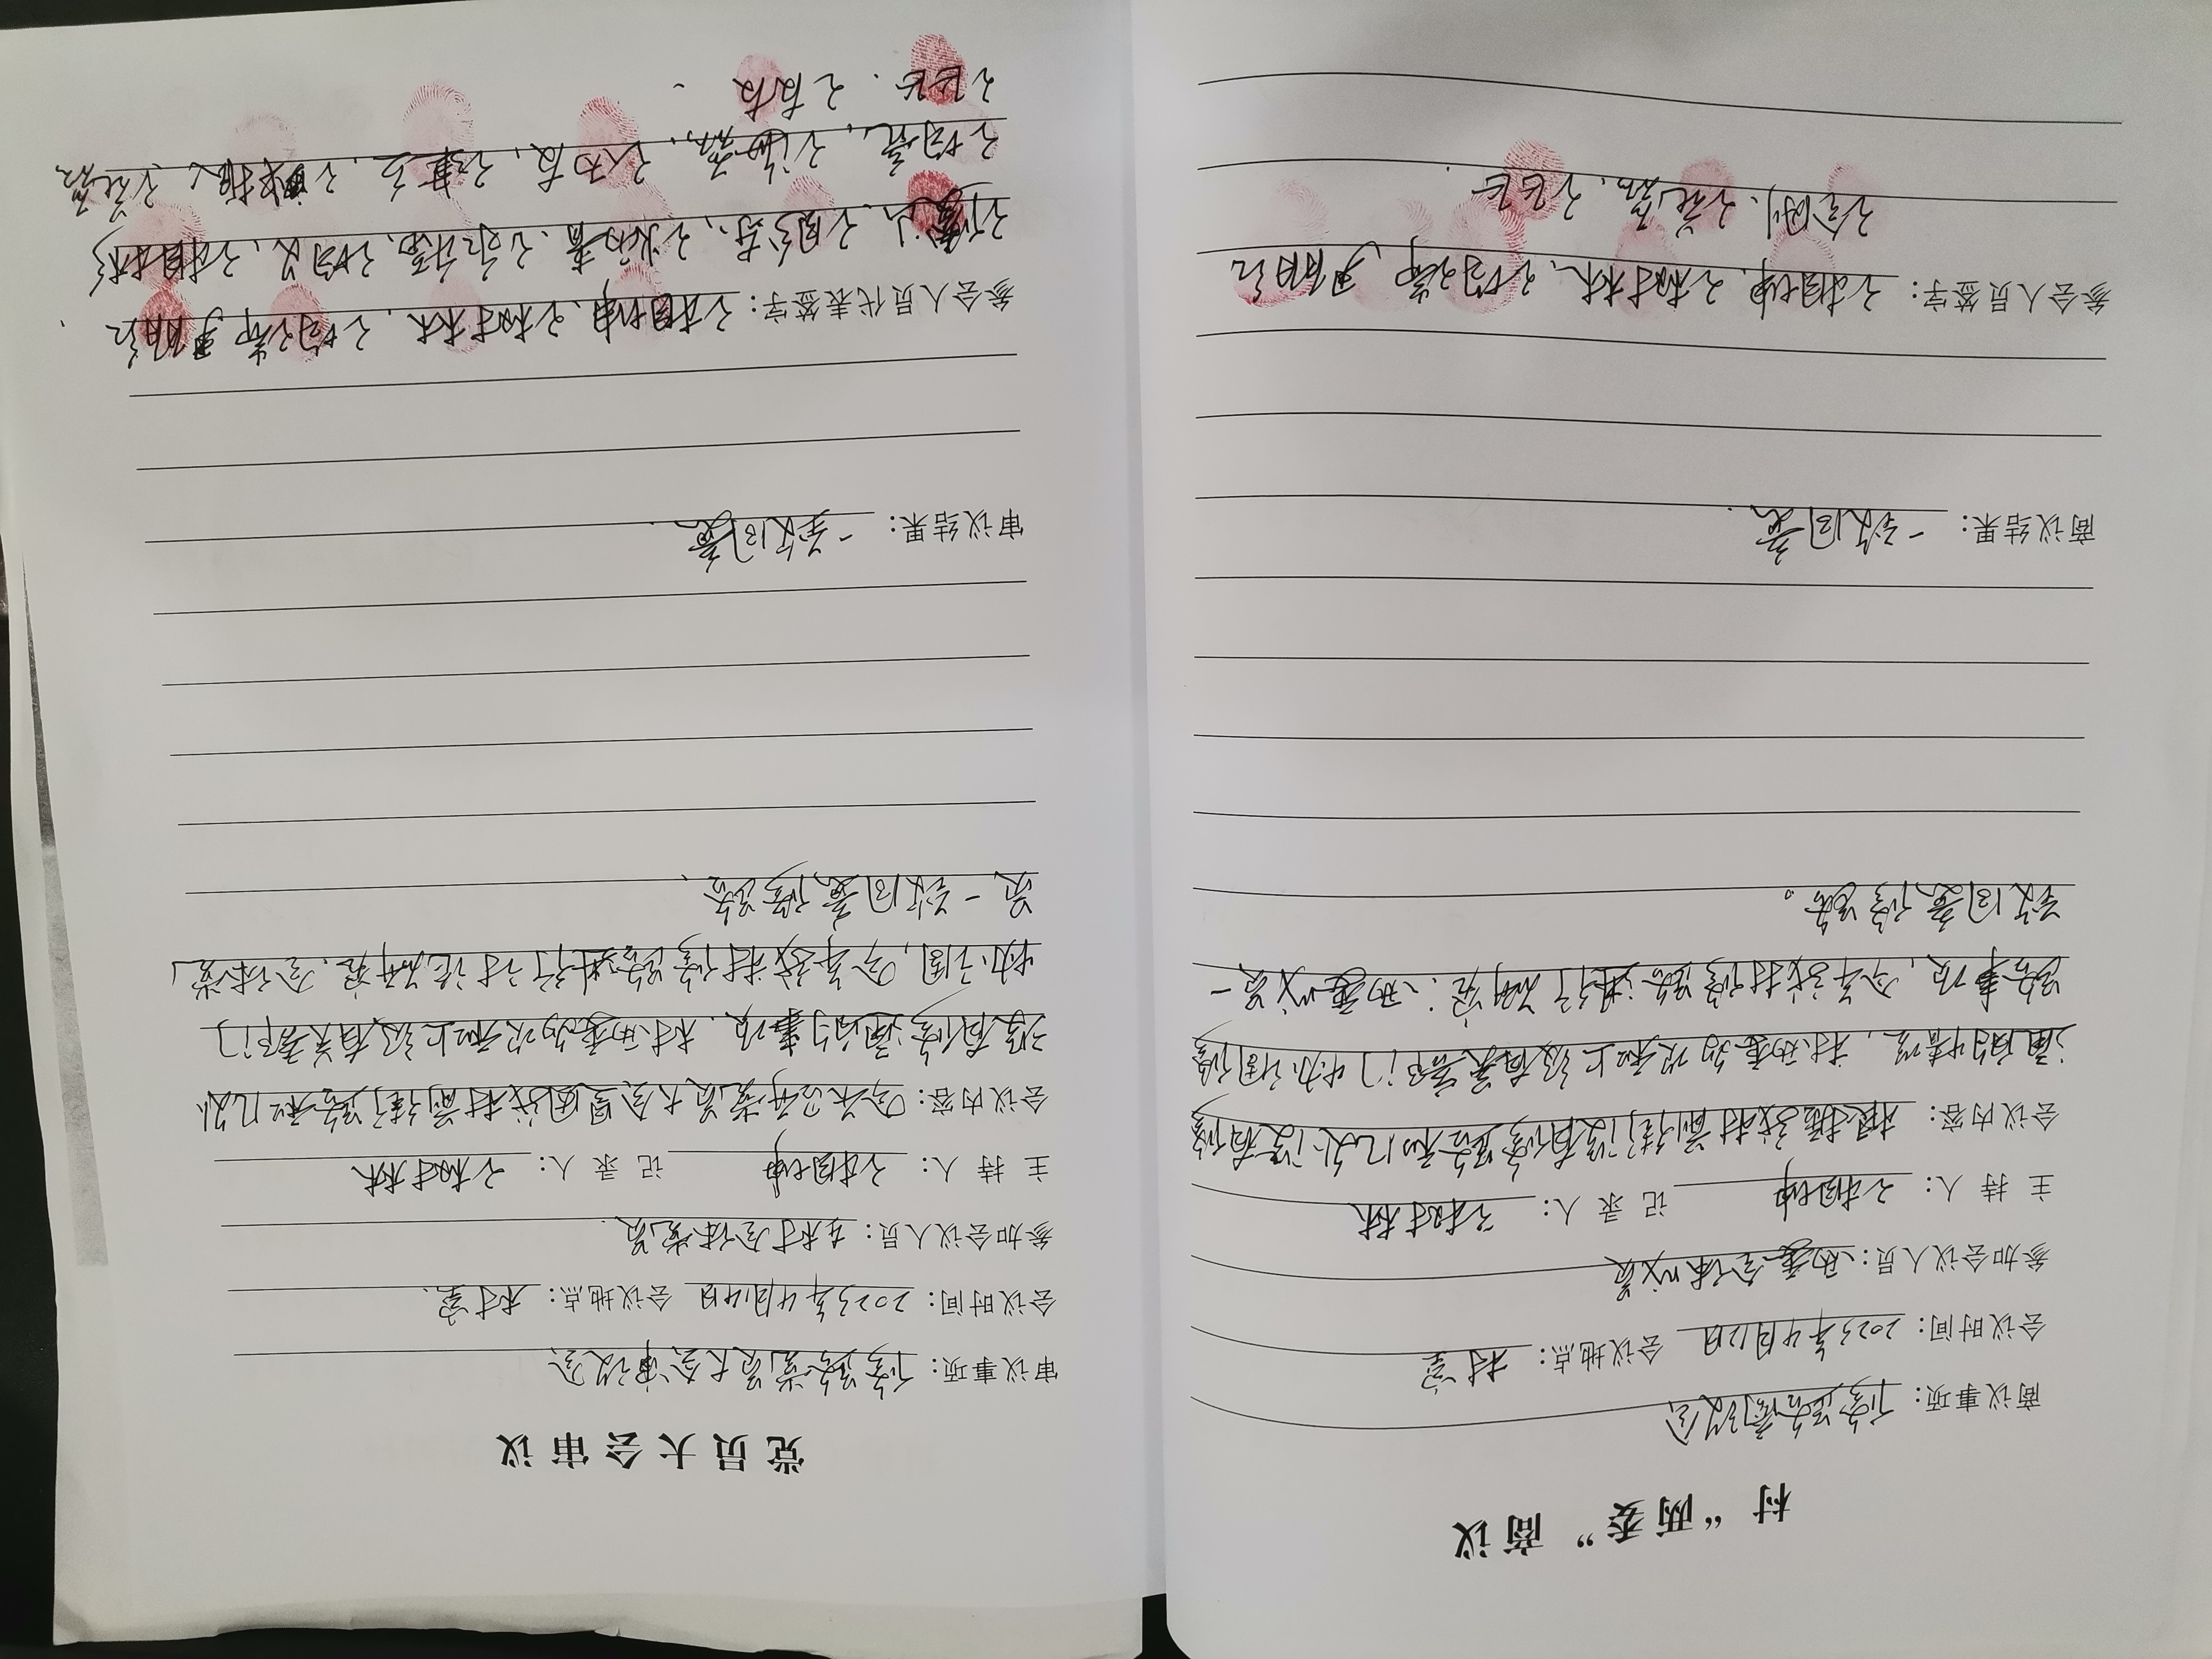 村“两委”商议
商议事项：修路商议会
会议时间：2023年4月12日 会议地点：村室
参加会议人员：两委全体成员
主持人：王相坤 记录人：王树林
会议内容：根据我村前街没有修路和几处没有修
通的情况，村两委多次和上级有关部门协调修
路事项，今年我村修路进行研究：两委成员一
致同意修路。
商议结果：一致同意.
参会人员签字：王相坤、王树林、王均瑞、尹丽红
王全刚、王花磊、王飞飞.
党员大会审议
审议事项：修路党员大会审议会
会议时间：2023年4月14日 会议地点：村室.
参加会议人员：在村全体党员.
主持人：王相坤 记录人：王树林
会议内容：今天召开党员大会是因我村前街路和几处
没有修通的事项、村两委多次和上级有关部门
协调，今年我村修路进行讨论研究、全体党
员一致同意修路、
审议结果：一致同意.
参会人员代表签字：王相坤、王树林、王均瑞 尹丽红、
山、王炳青、王永福、王均义、王相彬
王均亮、王海磊、王丙友、王建立、王花磊
王飞飞、王友友、